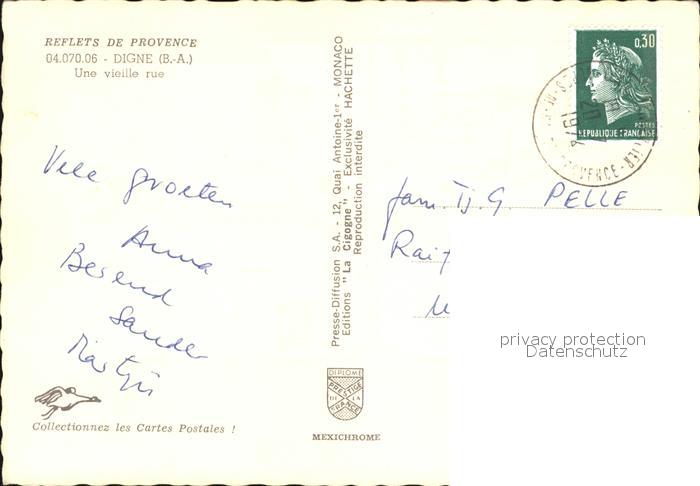 REFLETS DE PROVENCE
04.070.06 - DIGNE (B.-A.)
Une vieille rue
Vele groeten
Anna
Berend
Sander
Martijn
Collectionnez les Cartes Postales !
Presse-Diffusion S.A. - 12, Quai Antoine-1er - MONACO
Editions "La Cigogne" - Exclusivité HACHETTE
Reproduction interdite
DIPLOME
PRESTIGE
DE LA
FRANCE
MEXICHROME
0,30
POSTES
REPUBLIQUE FRANÇAISE
PROVENCE
fam. Tj. G. PELLE
privacy protection
Datenschutz